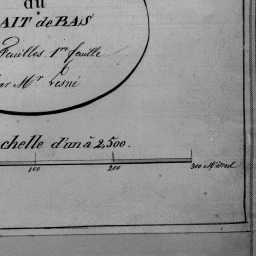 du
AIT de BAS
Feuilles. 1re feuille
par Mr Lesné
chelle d'un à 2,500.
100 200 300 Mètres